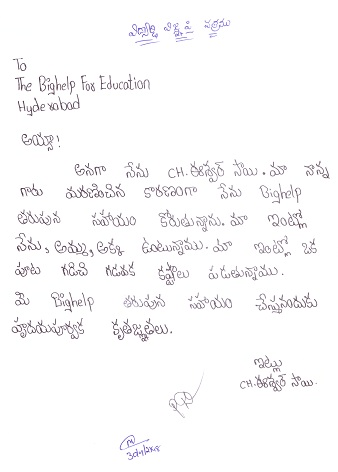 విద్యార్థి విజ్ఞప్తి పత్రము
To
The Bighelp For Education
Hyderabad
అయ్యా!
అనగా నేను CH. ఈశ్వర్ సాయి. మా నాన్న
గారు మరణించిన కారణంగా నేను Bighelp
తరుపున సహాయం కోరుతున్నాను. మా ఇంట్లో
నేను, అమ్మ, అక్క ఉంటున్నాము. మా ఇంట్లో ఒక
పూట గడిచి గడవక కష్టాలు పడుతున్నాము.
మీ Bighelp తరుపున సహాయం చేస్తునందుకు
హృదయపూర్వక కృతజ్ఞతలు.
ఇట్లు
CH. ఈశ్వర్ సాయి.